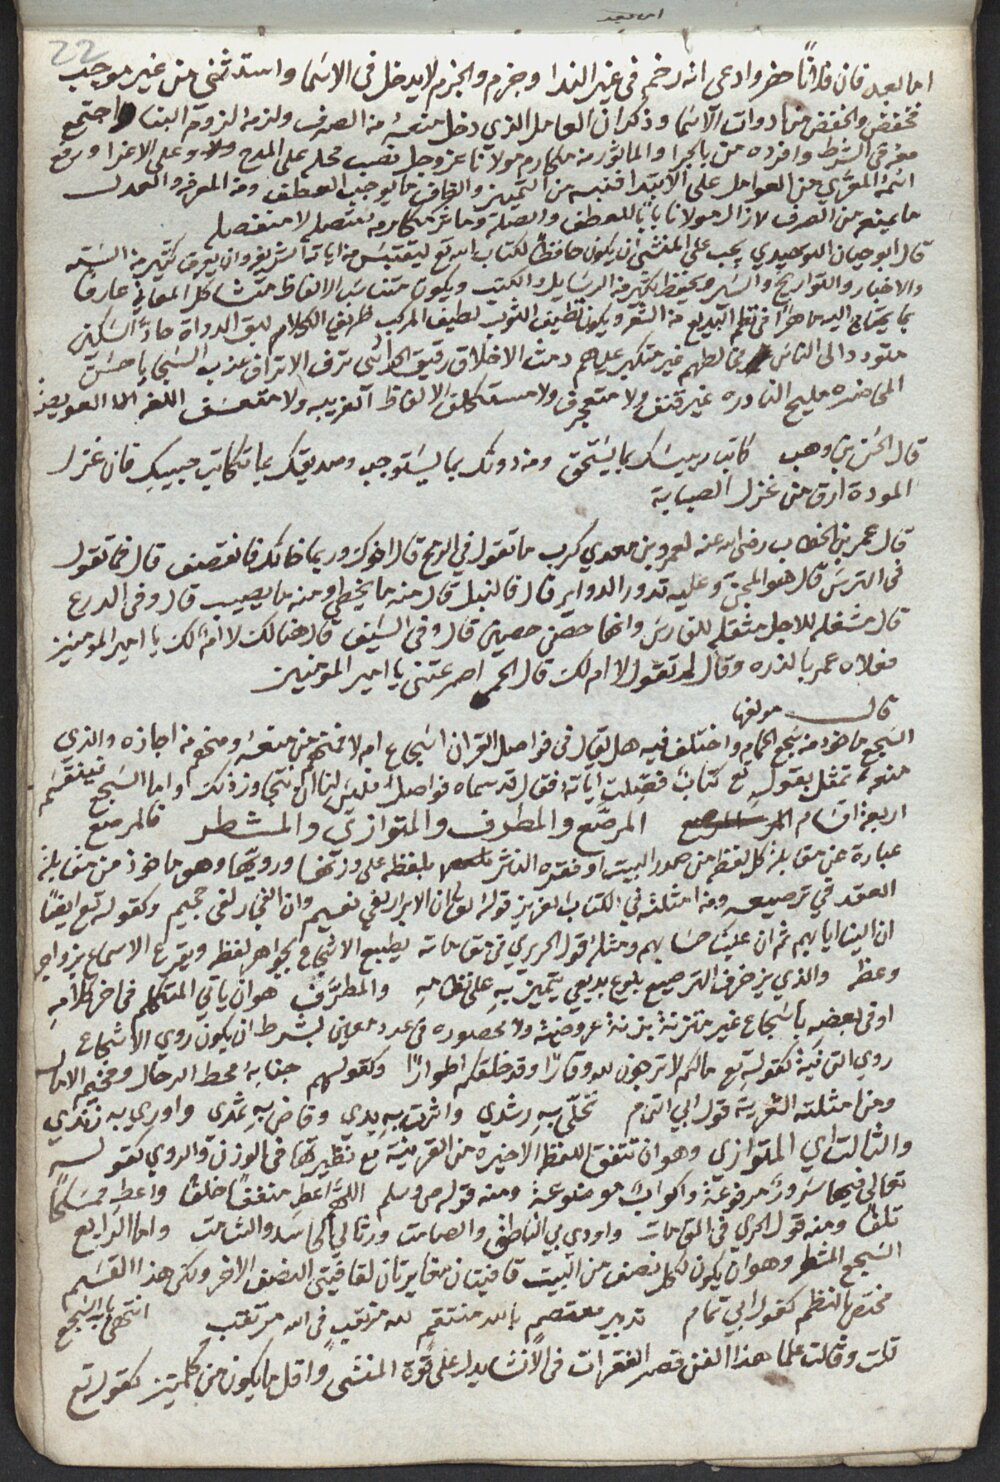 اما بعد
22
اما بعد فان فلانًا حضر وادعى انه رخم في غير الندا وجزم والجزم لا يدخل في الاسما واستدثنى من غير موجب
فخفض والخفض من ادوات الاسما وذكر ان العامل الذي دخل منعه من الصرف ولزمه لزوم البنا واجتمع
معرفي الشرط وافرده من بالجرا والماثور من مكارم مولانا عز وجل نصب محله على المدح ولا وعلى الاغرا ورفع
اسمه المعري من العوامل على الابتدا فنيه من التمييز والتحاق ما يوجب العطف ومن المعرفه والعدل
ما يمنع من الصرف لا زال مولانا بابًا للعطف والصلة وما ثر مكارمه متصله لا منفصله
قال ابو حيان التوحيدي يجب على المنشى ان يكون حافظًا لكتاب الله تع ليقتبس من اياته الشريفه وان يعرف كثير من السنه
والاخبار والتواريخ والسير ويحفظ كثير من الرسايل والكتب ويكون متناسب الالفاظ متشاكل المعاني عارفًا
بما يحتاج اليه ماهرًا في نظم البديع من الشعر ويكون نظيف الثوب لطيف المركب ظريف الكلام لبق الدواة حاد السكين
متودد الى الناس مخالطهم غير متكبر عليهم دمث الاخلاق رقيق الحواشى ترف الاطراف عذب السجايا حسن
المحاضره مليح النادره غير قنف ولا متعجرف ولا مستكلف الالفاظ الغريبه ولا متعسف اللغه العويصه
قال الحسن بن وهب كاتب رييسك بما يستحق ومن دونك بما يستوجب وصديقك بما تكاتب حبيبك فان غزل
المودة ارق من غزل الصبابة
قال عمر بن الخطاب رضى الله عنه لعمرو بن معدي كرب ما تقول في الرمح قال اخوك وربما خانك فانقصف قال فما تقول
في الترس قال هو المجن وعليه تدور الدواير قال فالنبل قال منه ما يخطى ومنه ما يصيب قال وفي الدرع
قال مشغله للراجل مثقله للفارس وانها حصن حصين قال وفي السيف قال هنالك لا ام لك يا امير المومنين
فعلاه عمر بالدره وقال له تقول لا ام لك قال الحمى اصرعتني يا امير المومنين
قال مولفها
السجع ماخوذ من سجع الحمام واختلف فيه هل يقال في فواصل القران اسجاع ام لا فمنهم من منعه ومنهم من اجازه والذي
منعه تمثل بقوله تع كتاب فصلت اياته فقال قد سماه فواصل فليس لنا ان نتجاوز ذلك واما السجع فينقسم
اربعة اقسام المرصع والمطرف والمتوازي والمشطر فالمرصع
عبارة عن مقابلة كل لفظه من صدر البيت او فقرة النثر بلفظه على وزنها ورويها وهو ماخوذ من مقابلة
العقد في ترصيعه ومن امثلته في الكتاب العزيز قوله تعالى ان الابرار لفي نعيم وان الفجار لفي جحيم وكقوله تع ايضًا
ان الينا ايابهم ثم ان علينا حسابهم ومثله قول الحريري في مقاماته يطبع الاسجاع بجواهر لفظه ويقرع الاسماع بزواجر
وعظه والذي يزخرف الترصيع بلوغ بديعي يتميز به على نظامه والمطرف هو ان ياتي المتكلم في اخر كلامه
او في بعضه باسجاع غير متزنة بزنة عروضية ولا محصوره في عدد معين بشرط ان يكون روي الاسجاع
روي القافية كقوله تع مالكم لا ترجون لله وقارًا وقد خلقكم اطوارًا وكقولهم جنابه محط الرحال ومخيم الامال
ومن امثلته الشعرية قول ابي تمام تجلى به رشدي واثرت به يدي وفاض به ثمدي واورى به زندي
والثالث اي المتوازي وهو ان تتفق اللفظه الاخيره من القرينة مع نظيرتها في الوزن والروي كقوله
تعالى فيها سررٌ مرفوعة واكواب موضوعة ومنه قوله ص وسلم اللهم اعط منفقًا خلفًا واعط ممسكًا
تلفًا ومنه قول الحريري في المقامات واودى بي الناطق والصامت ورثا لي الحاسد والشامت واما الرابع
السجع المشطر وهو ان يكون لكل نصف من البيت قافيتان مغايرتان لقافيتي النصف الاخر ولكن هذا القسم
مختص بالنظم كقول ابي تمام تدبير معتصم بالله منتقم لله مرتغب في الله مرتقب انتهى باب السجع
قلت وقالت علما هذا الفن قصر الفقرات في الانشا يدل على قوة المنشى واقل ما يكون من كلمتين كقوله تع